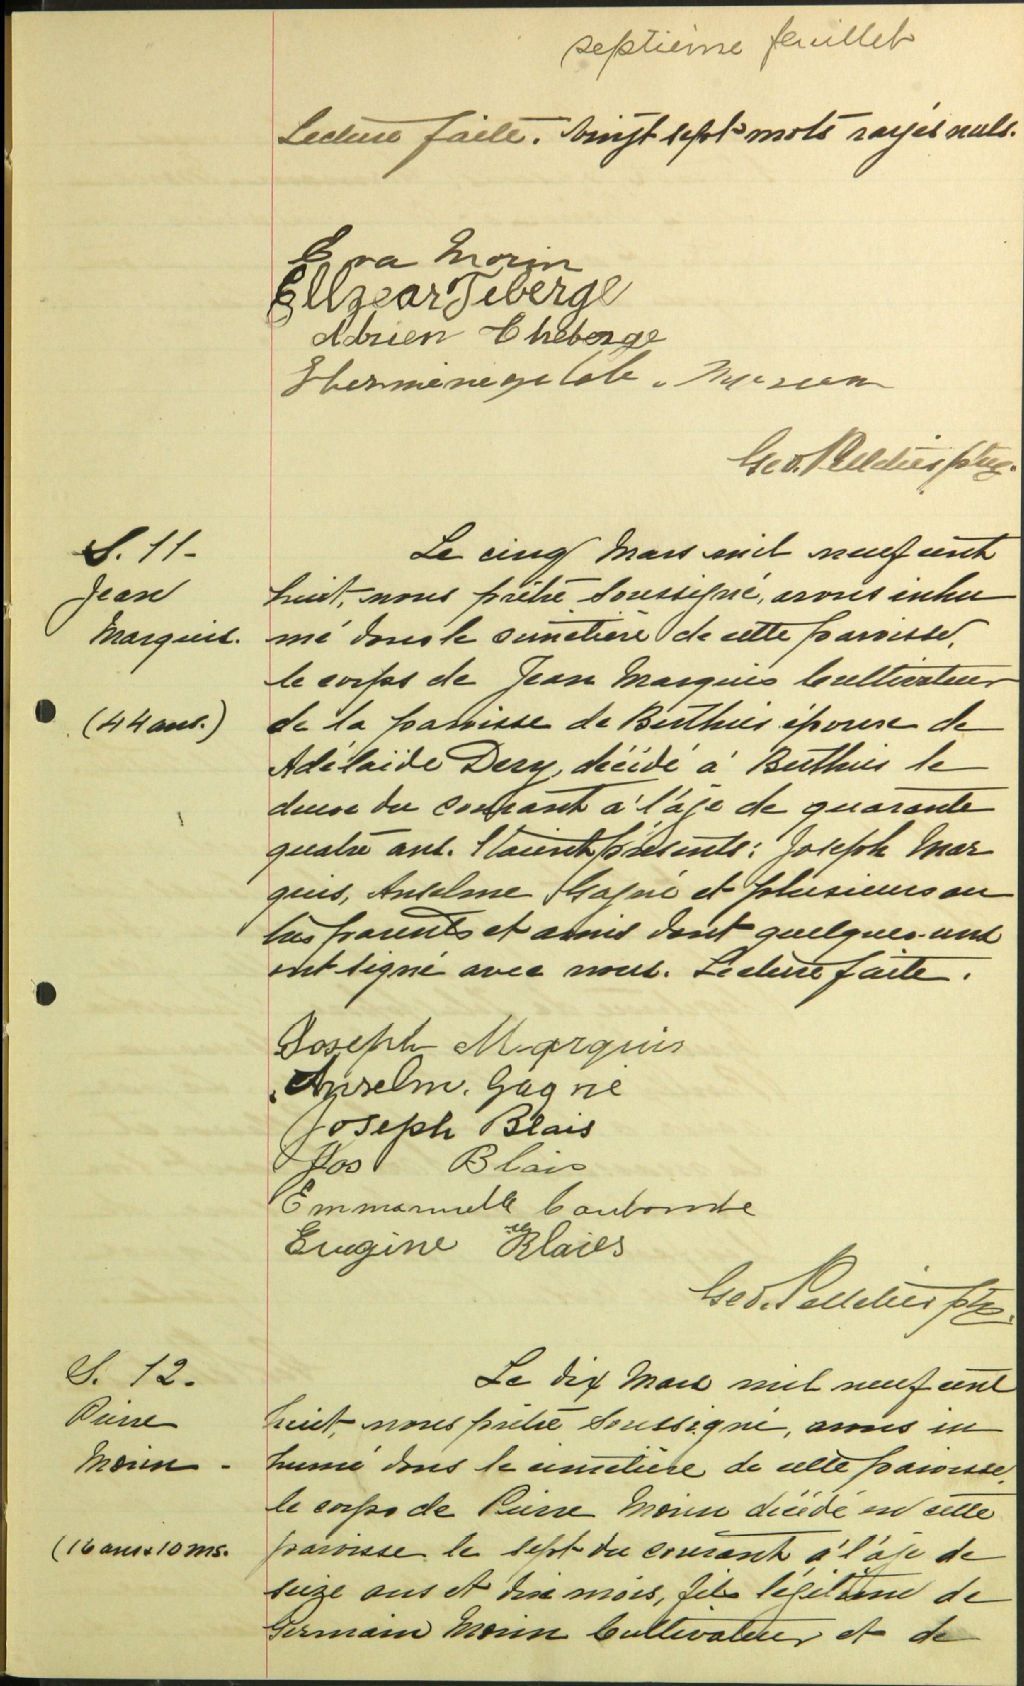 septième feuillet
Lecture faite. Vingt sept mots rayés nuls.
Eva Morin
Ellzear Teberge
Adrien Theberge
Geo. Pelletier ptre.
S. 11-
Jean
Marquis.
(44 ans.)
Le cinq Mars mil neuf cent
huit, nous prêtre soussigné, avons inhu
mé dans le cimetière de cette paroisse,
le corps de Jean Marquis Cultivateur
de la paroisse de Berthier époux de
Adélaïde Dery, décédé à Berthier le
deux du courant à l'âge de quarante
quatre ans. Etaient présents: Joseph Mar
quis, Anselme Gagné et plusieurs au
tres parents et amis dont quelques-uns
ont signé avec nous. Lecture faite.
Joseph Marquis
Anselm. Gagné
Joseph Blais
Jos Blais
Emmanuelle
Eugène Blaies
Geo. Pelletier ptre.
S. 12.
Pierre
Morin -
(16 ans & 10 ms.
Le dix Mars mil neuf cent
huit, nous prêtre soussigné, avons in
humé dans le cimetière de cette paroisse,
le corps de Pierre Morin décédé en cette
paroisse le sept du courant à l'âge de
seize ans et dix mois, fils légitime de
Germain Morin Cultivateur et de